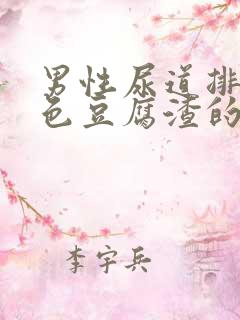 男性尿道排
色豆腐渣的
李宇兵